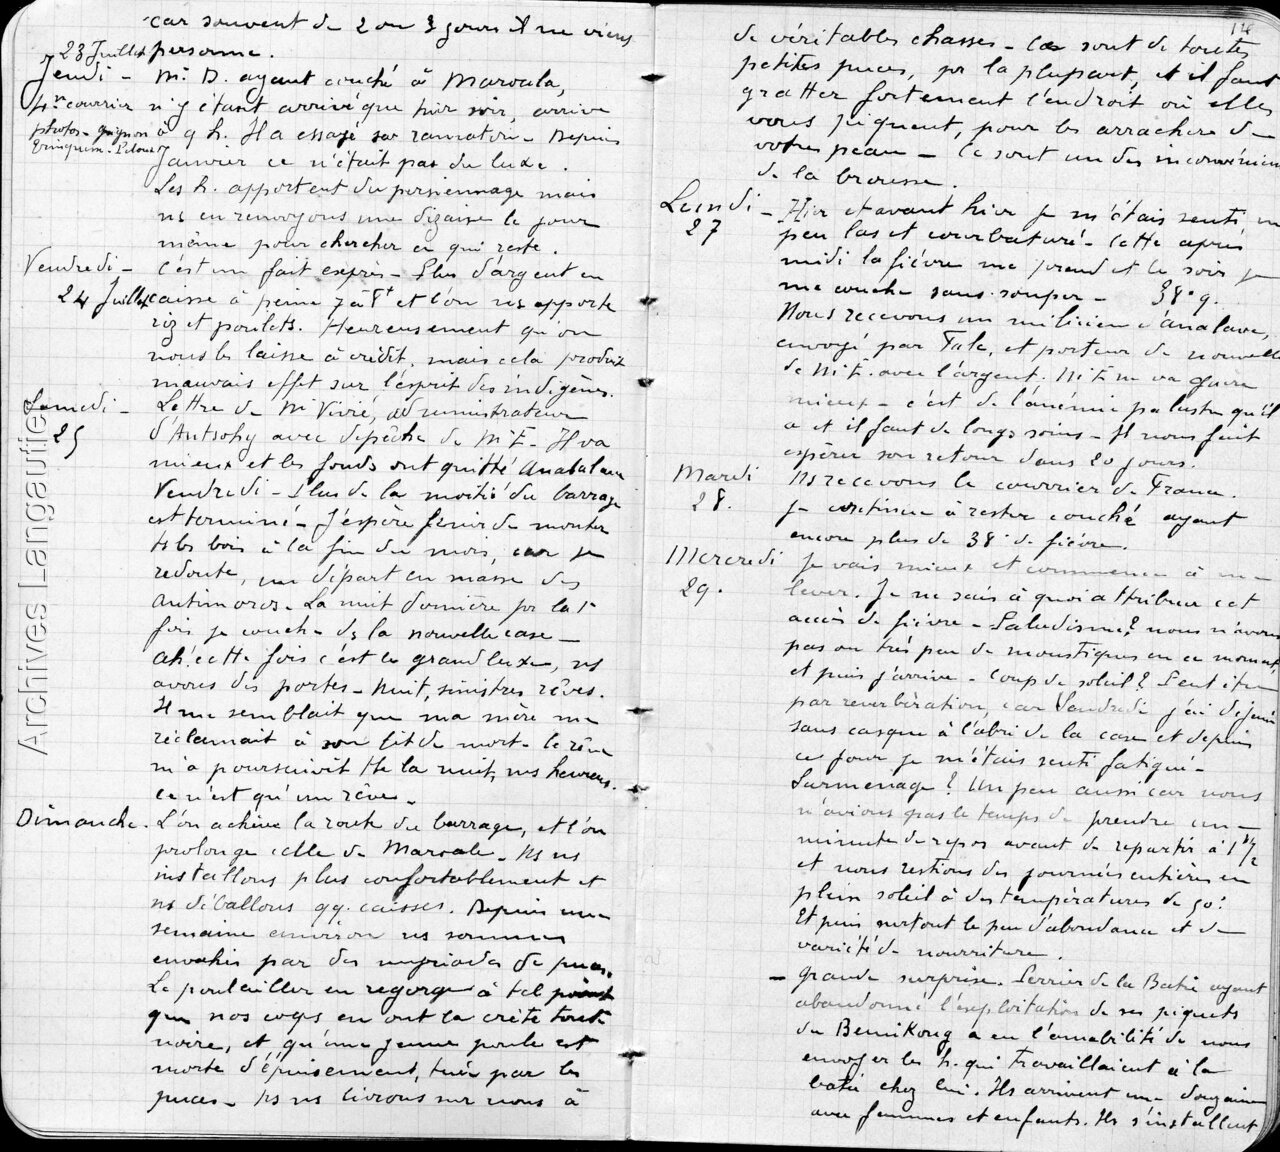 car souvent de 2 ou 3 jours il ne viens
personne.
23 Juillet
Jeudi - Mr D. ayant couché à Maroala,
4e courrier n'y étant arrivé que hier soir, arrive
photos - à 9 h. Il a essayé son ramatou - Depuis
Janvier ce n'était pas du luxe.
Les h. apportent du personnage mais
ns en renvoyons une dizaine le jour
même pour chercher ce qui reste.
Vendredi - C'est un fait exprès - Plus d'argent en
24 Juillet caisse à peine 7 à 8f et l'on ns apporte
riz et poulets. Heureusement qu'on
nous les laisse à crédit, mais cela produit
mauvais effet sur l'esprit des indigènes.
Samedi - Lettre de Mr Vivié, administrateur
25 d'Antsohy avec dépêche de Mr F - Il va
mieux et les fonds ont quitté Analalava
Vendredi - Plus de la moitié du barrage
est terminé - J'espère finir de monter
ts les bois à la fin du mois, car je
redoute, un départ en masse des
Antimoros. La nuit dernière pr la 1e
fois je couche ds la nouvelle case -
Ah! cette fois c'est le grand luxe, ns
avons des portes - Nuit, sinistres rêves.
Il me semblait que ma mère me
réclamait à son lit de mort - le rêve
m'a poursuivit tte la nuit,
ce n'est qu'un rêve.
Dimanche. L'on achève la route du barrage, et l'on
prolonge celle de Maroala - Ns ns
installons plus confortablement et
ns déballons qq. caisses. Depuis une
semaine environ ns sommes
envahis par des myriades de puces.
Le poulailler en regorge à tel point
que nos coqs en ont la crête toute
noire, et qu'une jeune poule est
morte d'épuisement, tuée par les
puces - Ns ns livrons sur nous à
114
de véritables chasses - Ces sont de toutes
petites puces, pr la plupart, et il faut
gratter fortement l'endroit où elles
vous piquent, pour les arracher de
votre peau - Ce sont un des inconvénien
de la brousse.
Lundi - Hier et avant hier je m'étais senti un
27 peu las et courbaturé - Cette après
midi la fièvre me prend et le soir je
me couche sans souper - 38°9.
Nous recevons un milicien d'Analalava,
envoyé par Talc, et porteur de nouvelle
de Mr F. avec l'argent. Mr F ne va guère
mieux - c'est de l'anémie palustre qu'il
a et il faut de longs soins - Il nous fait
espérer son retour dans 20 jours.
Mardi Ns recevons le courrier de France.
28. Je continue à rester couché ayant
encore plus de 38° de fièvre.
Mercredi Je vais mieux et commence à me
29. lever. Je ne sais à quoi attribuer cet
accès de fièvre - Paludisme? nous n'avons
pas ou très peu de moustiques en ce moment,
et puis j'arrive - Coup de soleil? Peut être
par réverbération, car Vendredi j'ai déjeuné
sans casque à l'abri de la case et depuis
ce jour je m'étais senti fatigué -
Surmenage? Un peu aussi car nous
n'avions pas le temps de prendre une
minute de repos avant de repartir à 1h 1/2
et nous restions des journées entières en
plein soleil à des températures de 50°.
Et puis surtout le peu d'abondance et de
variété de nourriture.
- Grande surprise. de la Batie ayant
abandonné l'exploitation de ses piquets
du Bemikong a eu l'amabilité de nous
envoyer les h. qui travaillaient à la
batie chez lui. Ils arrivent une douzaine
avec femmes et enfants. Ils s'installent
Archives Langautier